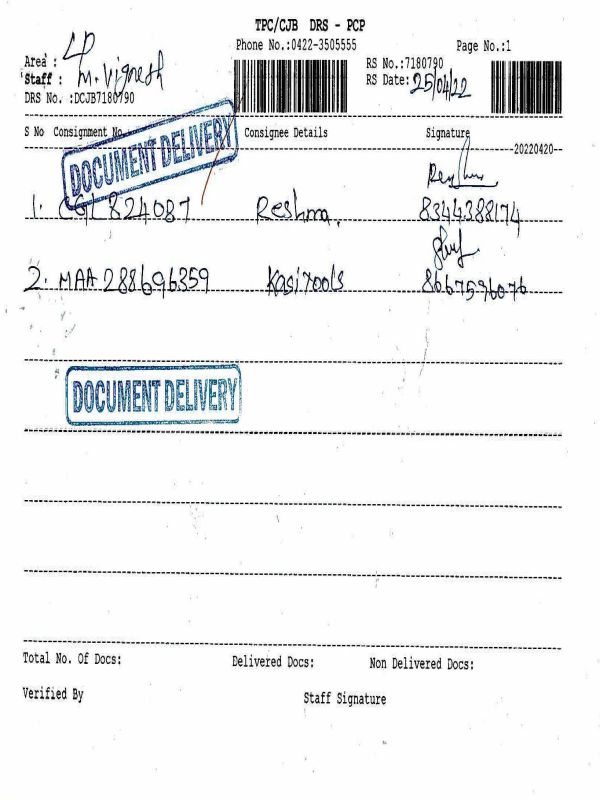 TPC/CJB DRS - PCP
Phone No.:0422-3505555 Page No.:1
Area : LP
Staff : M. Vignesh
DRS No. :DCJB7180790
RS No.:7180790
RS Date: 25/04/22
S No Consignment No. Consignee Details Signature
DOCUMENT DELIVERY
--20220420--
1. CGL824087 Reshma. 8344388174
2. MAA 288696359 Kasi Tools 8667596076
DOCUMENT DELIVERY
Total No. Of Docs: Delivered Docs: Non Delivered Docs:
Verified By Staff Signature